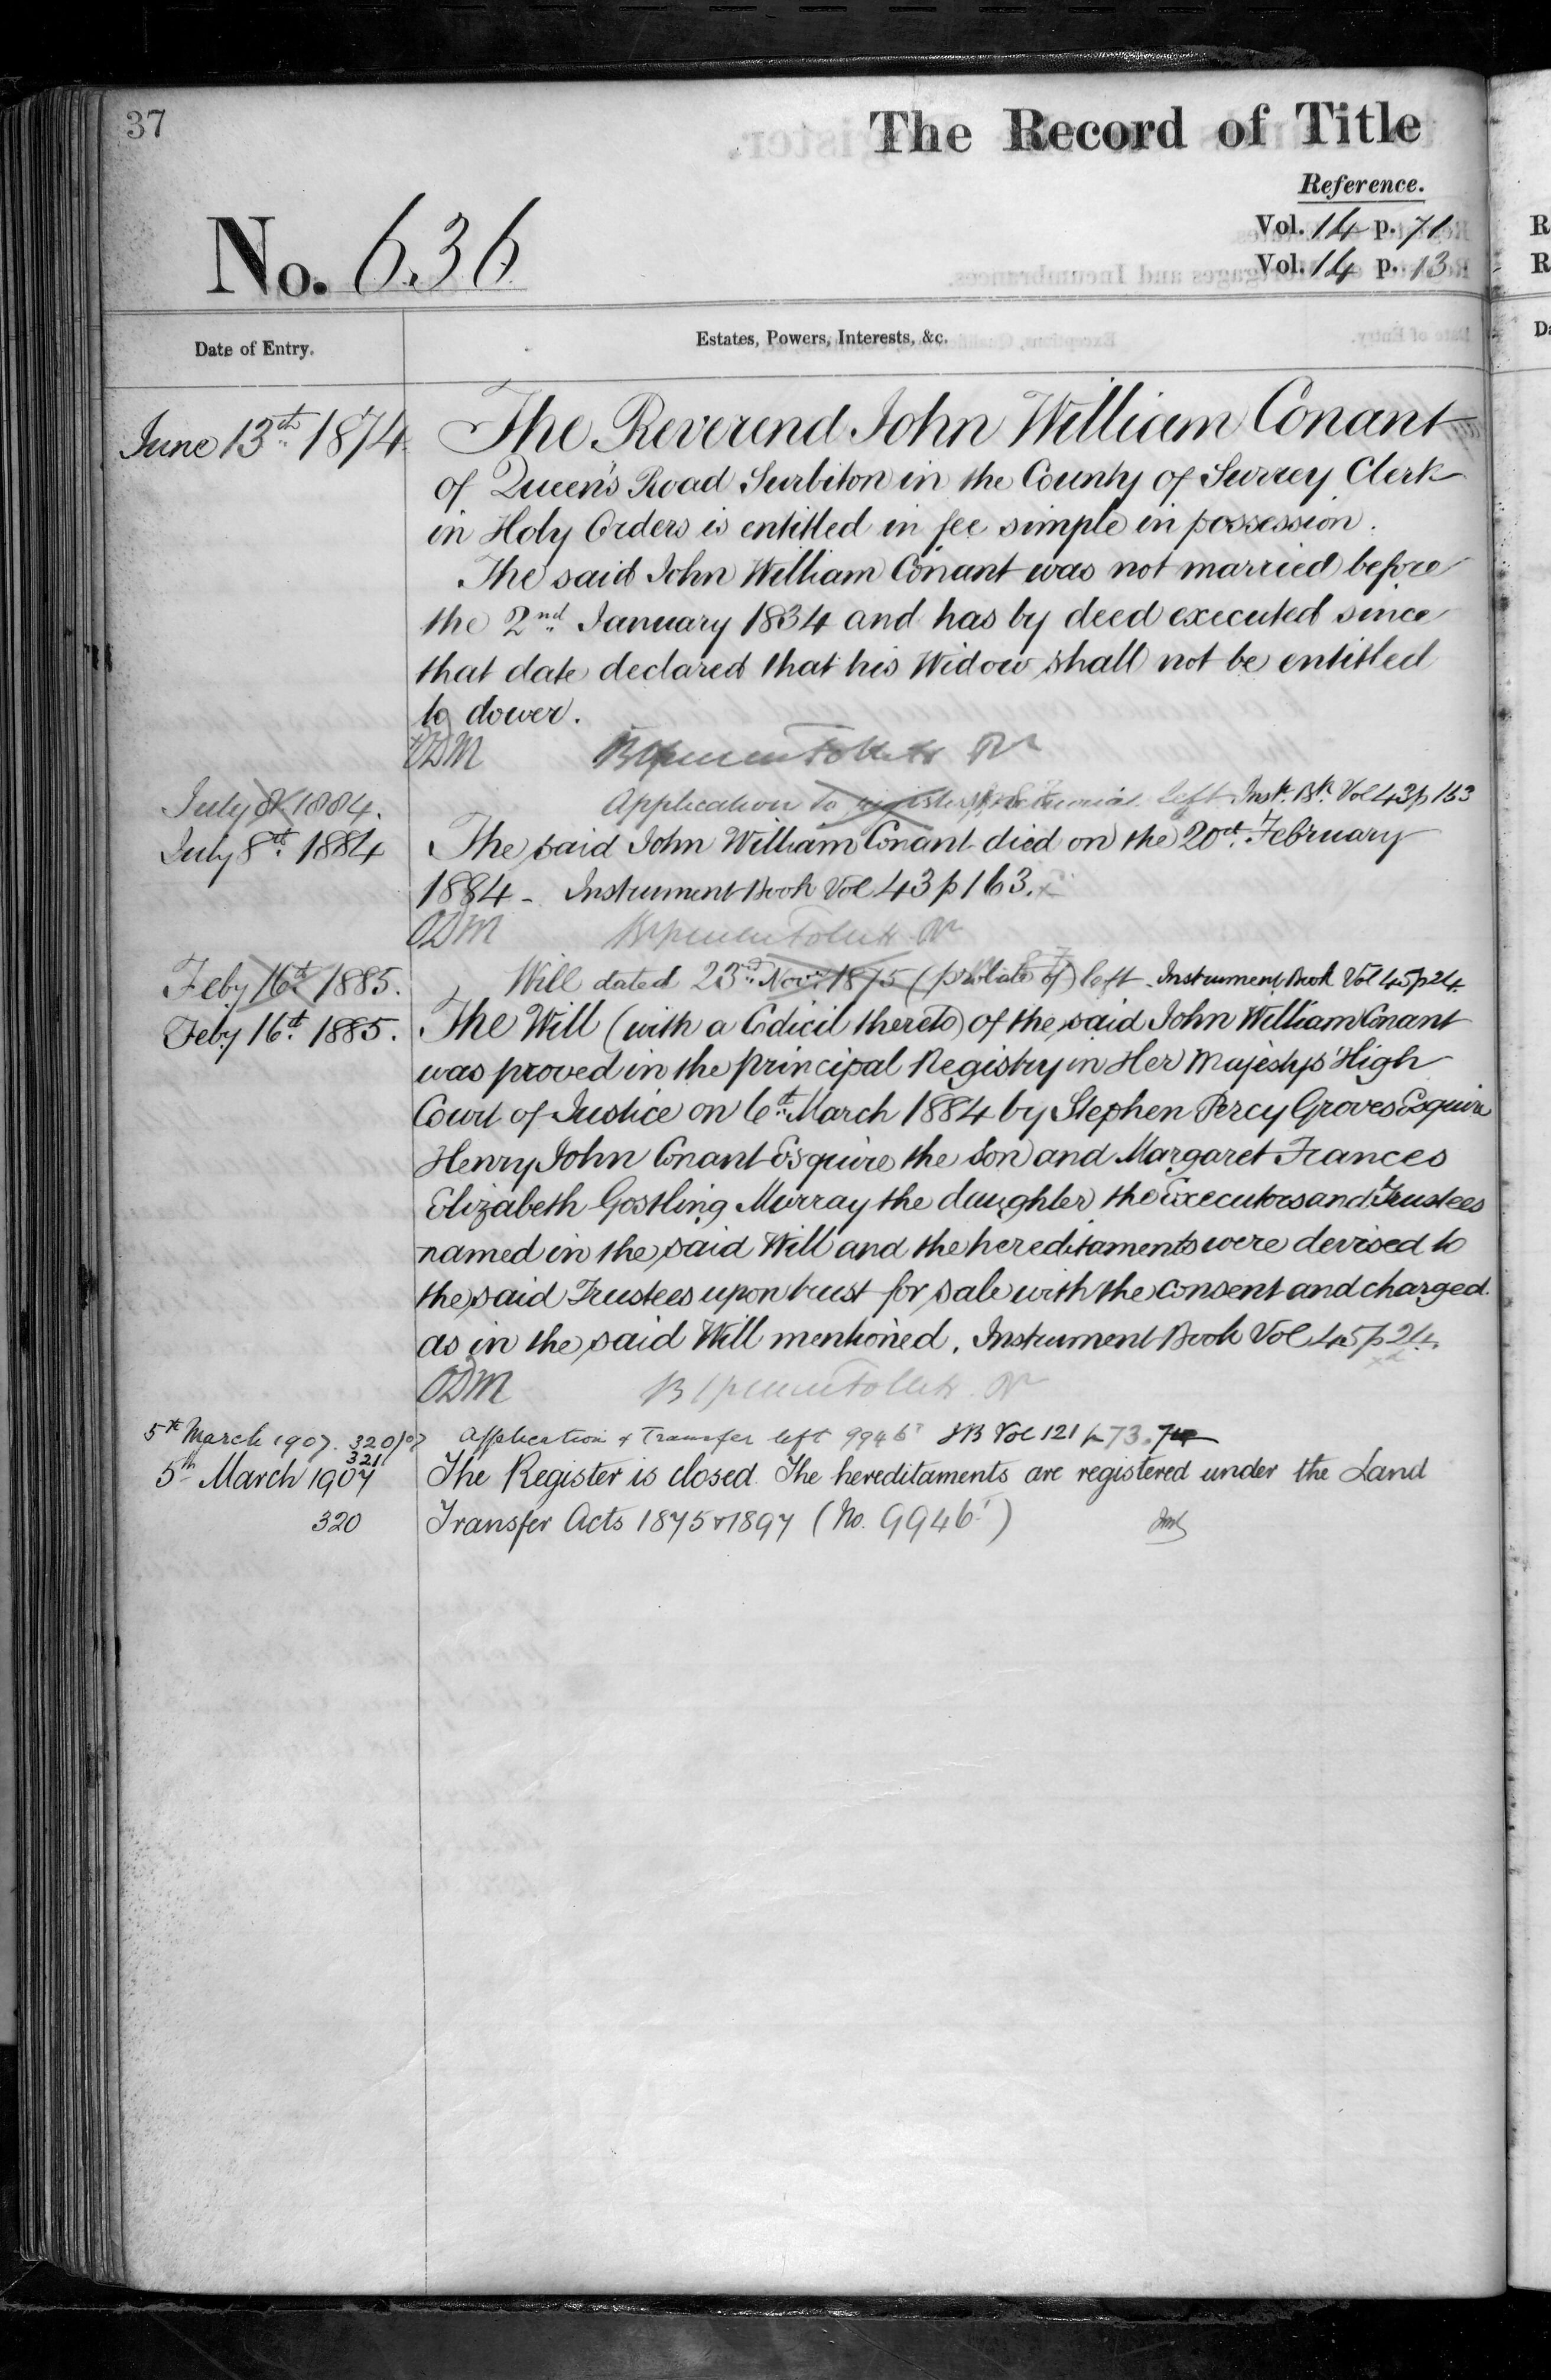 37
The Record of Title
Reference.
Vol. 14 p. 71
Vol. 14 p. 13
No. 636
Date of Entry.
Estates, Powers, Interests, &c.
June 13th 1874. The Reverend John William Conant
of Queen's Road Surbiton in the County of Surrey Clerk
in Holy Orders is entitled in fee simple in possession.
The said John William Conant was not married before
the 2nd January 1834 and has by deed executed since
that date declared that his Widow shall not be entitled
to dower.
ODM
July 8th 1884. Application to register left Inst. Bk. Vol 43 p 163
July 8th 1884 The said John William Conant died on the 20th February
1884 - Instrument Book Vol 43 p 163.
ODM
Feby 16th 1885. Will dated 23rd Novr 1875 (probate of) left. Instrument Book Vol 45 p 24.
Feby 16th 1885. The Will (with a Codicil thereto) of the said John William Conant
was proved in the principal Registry in Her Majestys' High
Court of Justice on 6th March 1884 by Stephen Percy Groves Esquire
Henry John Conant Esquire the Son and Margaret Frances
Elizabeth Gostling Murray the daughter the Executors and Trustees
named in the said Will and the hereditaments were devised to
the said Trustees upon trust for sale with the consent and charged
as in the said Will mentioned. Instrument Book Vol 45 p 24.
ODM
5th March 1907. 320/07 Application & Transfer left 9946 IB Vol 121 p 73.
321
5th March 1907 The Register is closed. The hereditaments are registered under the Land
320 Transfer Acts 1875 & 1897 (No. 9946)